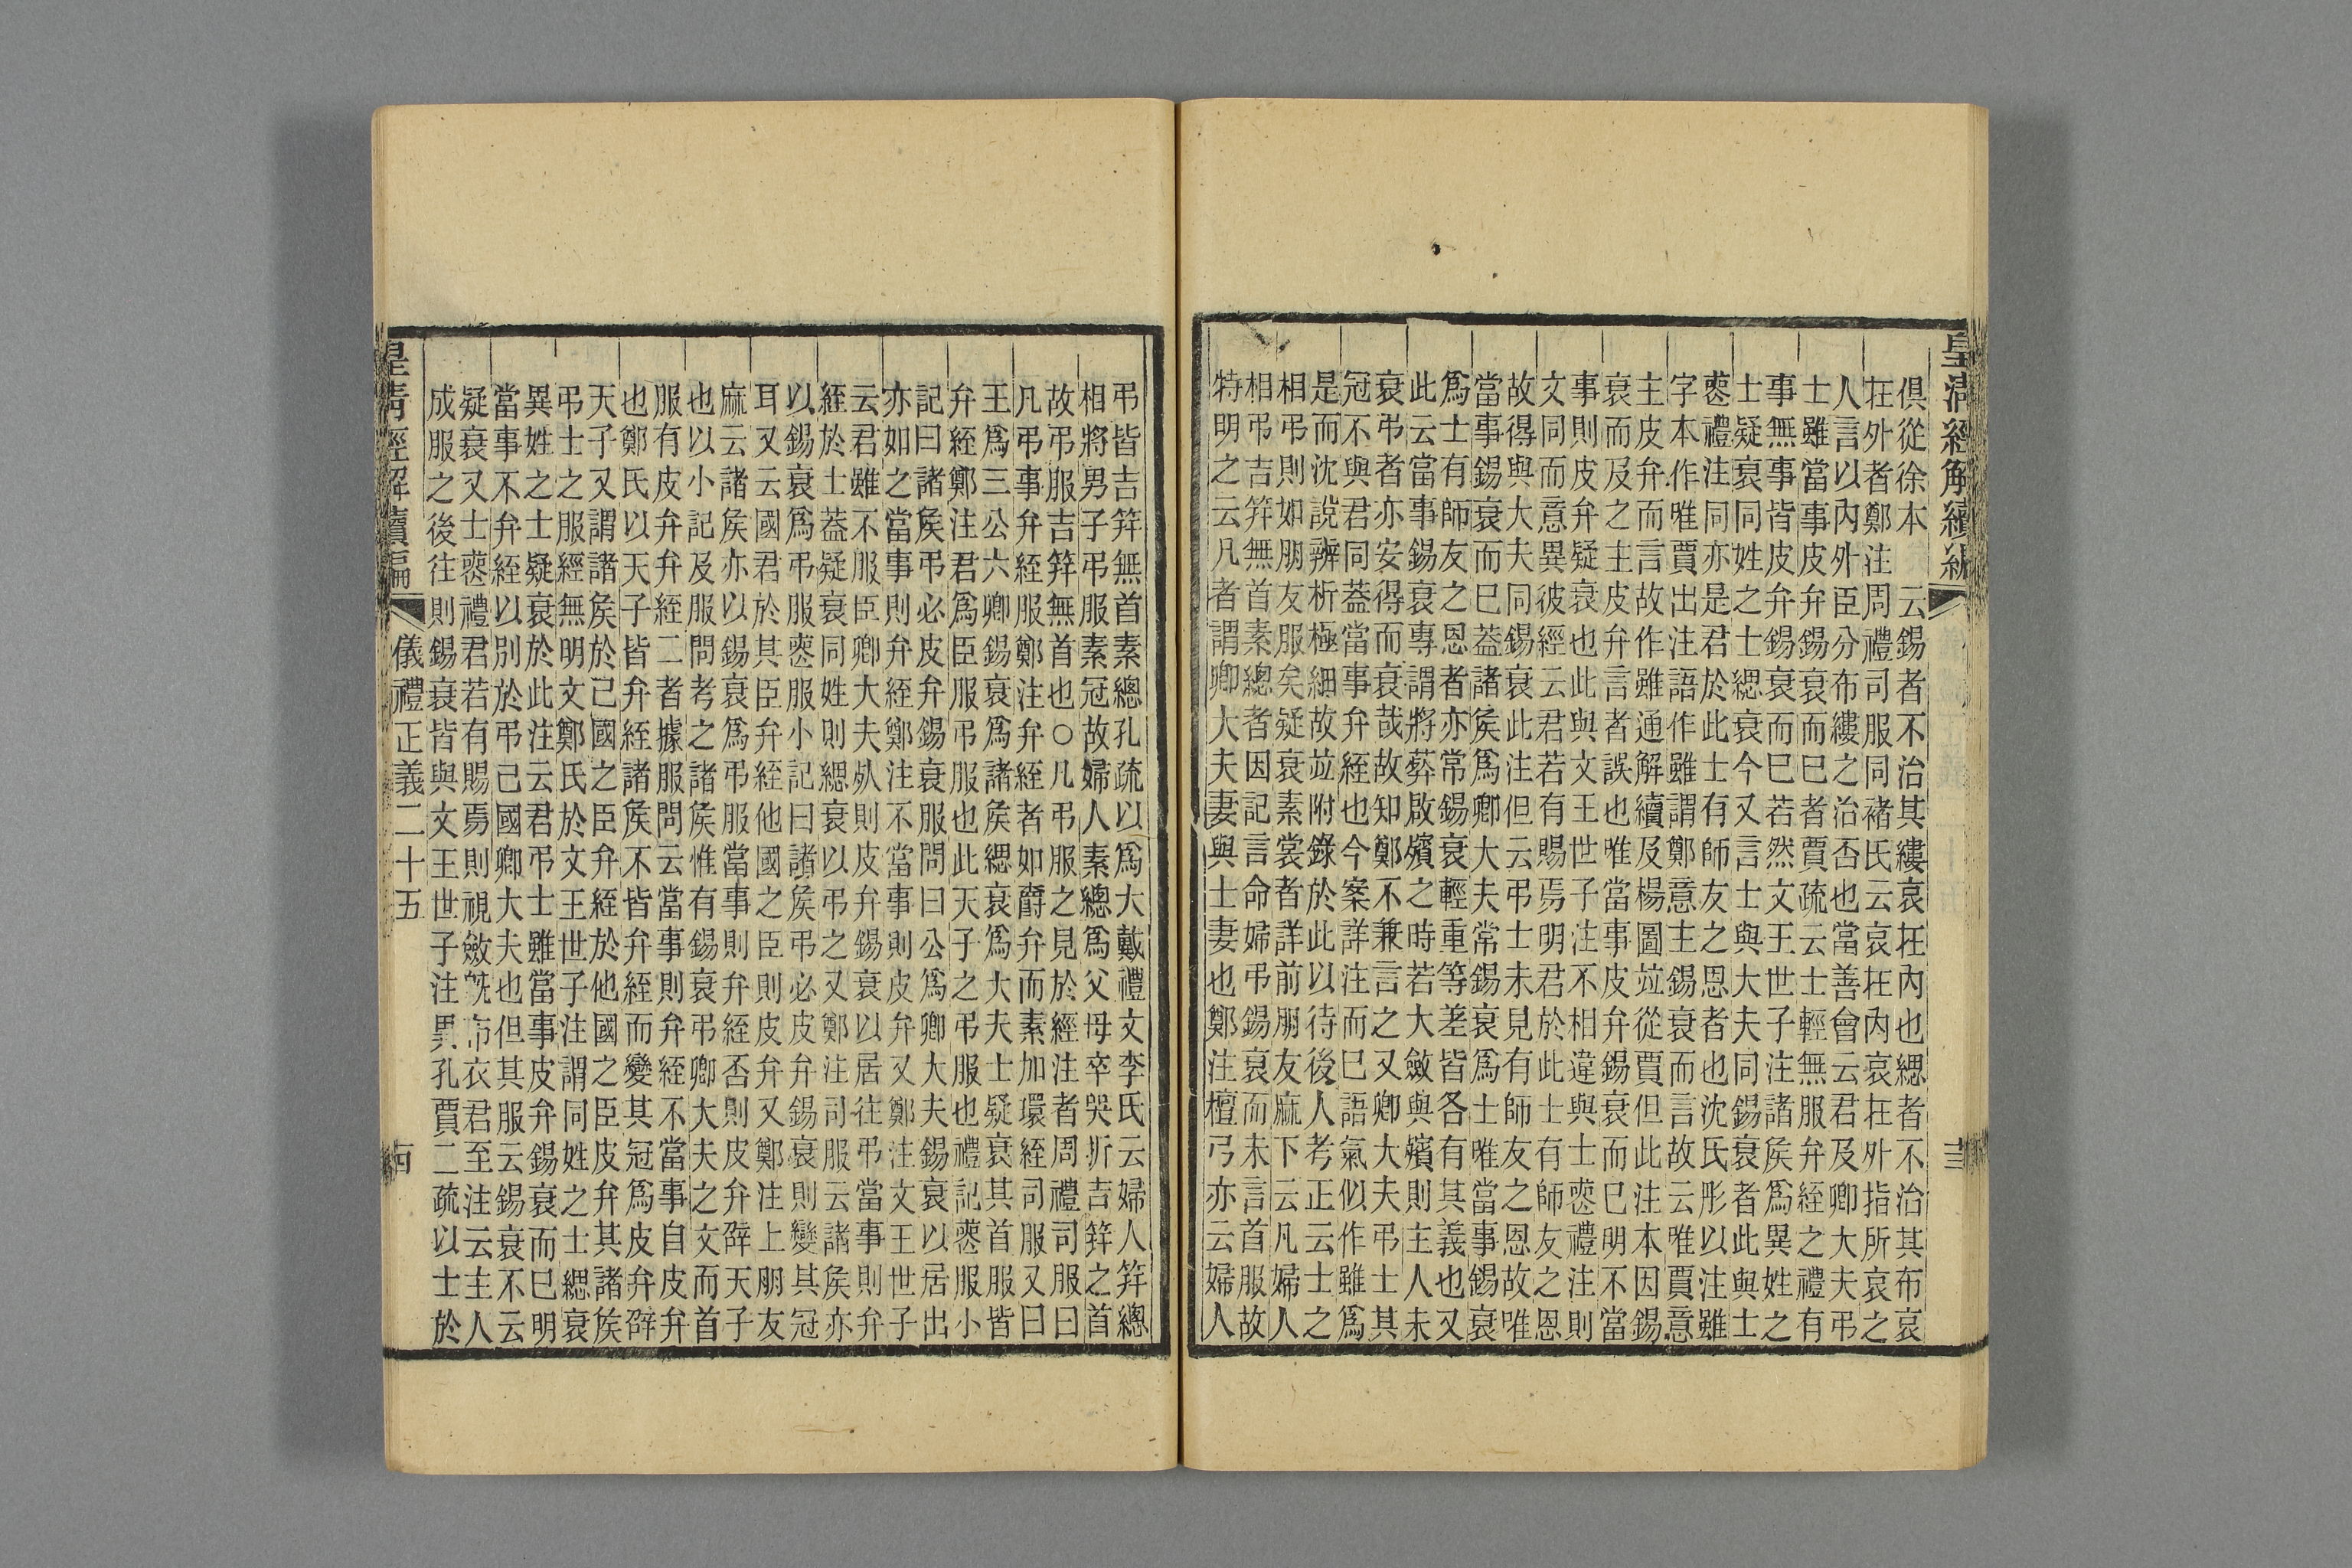 皇清經解續編
俱從徐本　云錫者不治其縷哀在內也緦者不治其布哀
在外者鄭注周禮司服同褚氏云哀在內哀在外指所哀之
人言以內外臣分布縷之治否也當善會云君及卿大夫弔
士雖當事皮弁錫衰而已者賈疏云士輕無服弁絰之禮有
事無事皆皮弁錫衰而已若然文王世子注諸矦爲異姓之
士疑衰同姓之士緦衰今又言士與大夫同錫衰者此與士
喪禮注同亦是君於此士有師友之恩者也沈氏彤以注雖
字本作唯賈出注語作雖謂鄭意主錫衰而言故云唯賈意
主皮弁而言故作雖通解續及楊圖竝從賈但此注本因錫
衰而及之主皮弁言者誤也唯當事皮弁錫衰而已明不當
事則皮弁疑衰也此與文王世子注不相違與士喪禮注則
文同而意異彼經云君若有賜焉明君於此士有師友之恩
故得與大夫同錫衰此注但云弔士未見有師友之恩故唯
當事錫衰而已蓋諸矦爲卿大夫常錫衰爲士唯當事錫衰
爲士有師友之恩者亦常錫衰輕重等差皆各有其義也又
此云當事錫衰專謂將葬啟殯之時若大斂與殯則主人未
衰弔者亦安得而衰哉故知鄭不兼言之又卿大夫弔士其
冠不與君同蓋當事弁絰也今案詳注而已語氣似作雖爲
是而沈說辨析極細故竝附錄於此以待後人考正云士之
相弔則如朋友服矣疑衰素裳者詳前朋友麻下云凡婦人
相弔吉笄無首素總者因記言命婦弔錫衰而未言首服故
特明之云凡者謂卿大夫妻與士妻也鄭注檀弓亦云婦人
弔皆吉笄無首素總孔疏以爲大戴禮文李氏云婦人笄總
相將男子弔服素冠故婦人素總爲父母卒哭折吉笄之首
故弔服吉笄無首也○凡弔服之見於經注者周禮司服曰
凡弔事弁絰服鄭注弁絰者如爵弁而素加環絰司服又曰
王爲三公六卿錫衰爲諸矦緦衰爲大夫士疑衰其首服皆
弁絰鄭注君爲臣服弔服也此天子之弔服也禮記喪服小
記曰諸矦弔必皮弁錫衰服問曰公爲卿大夫錫衰以居出
亦如之當事則弁絰鄭注不當事則皮弁又鄭注文王世子
云君雖不服臣卿大夫死則皮弁錫衰以居往弔當事則弁
絰於士蓋疑衰同姓則緦衰以弔之又鄭注司服云諸矦亦
以錫衰爲弔服喪服小記曰諸矦弔必皮弁錫衰則變其冠
耳又云國君於其臣弁絰他國之臣則皮弁又鄭注上朋友
麻云諸矦亦以錫衰爲弔服當事則弁絰否則皮弁辟天子
也以小記及服問考之諸矦惟有錫衰弔卿大夫之文而首
服有皮弁弁絰二者據服問云當事則弁絰不當事自皮弁
也鄭氏以天子皆弁絰諸矦不皆弁絰而變其冠爲皮弁辟
天子又謂諸矦於己國之臣弁絰於他國之臣皮弁其諸矦
弔士之服經無明文鄭氏於文王世子注謂同姓之士緦衰
異姓之士疑衰於此注云君弔士雖當事皮弁錫衰而已明
當事不弁絰以別於弔己國卿大夫也但其服云錫衰不云
疑衰又士喪禮君若有賜焉則視斂既布衣君至注云主人
成服之後往則錫衰皆與文王世子注異孔賈二疏以士於
皇清經解續編　儀禮正義二十五